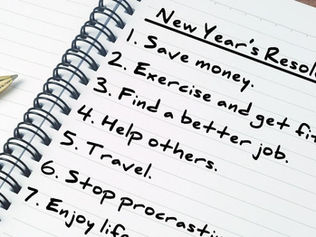 New Year's Resol
1. Save money.
2. Exercise and get fit
3. Find a better job.
4. Help others.
5. Travel.
6. Stop procrasti
7. Enjoy life